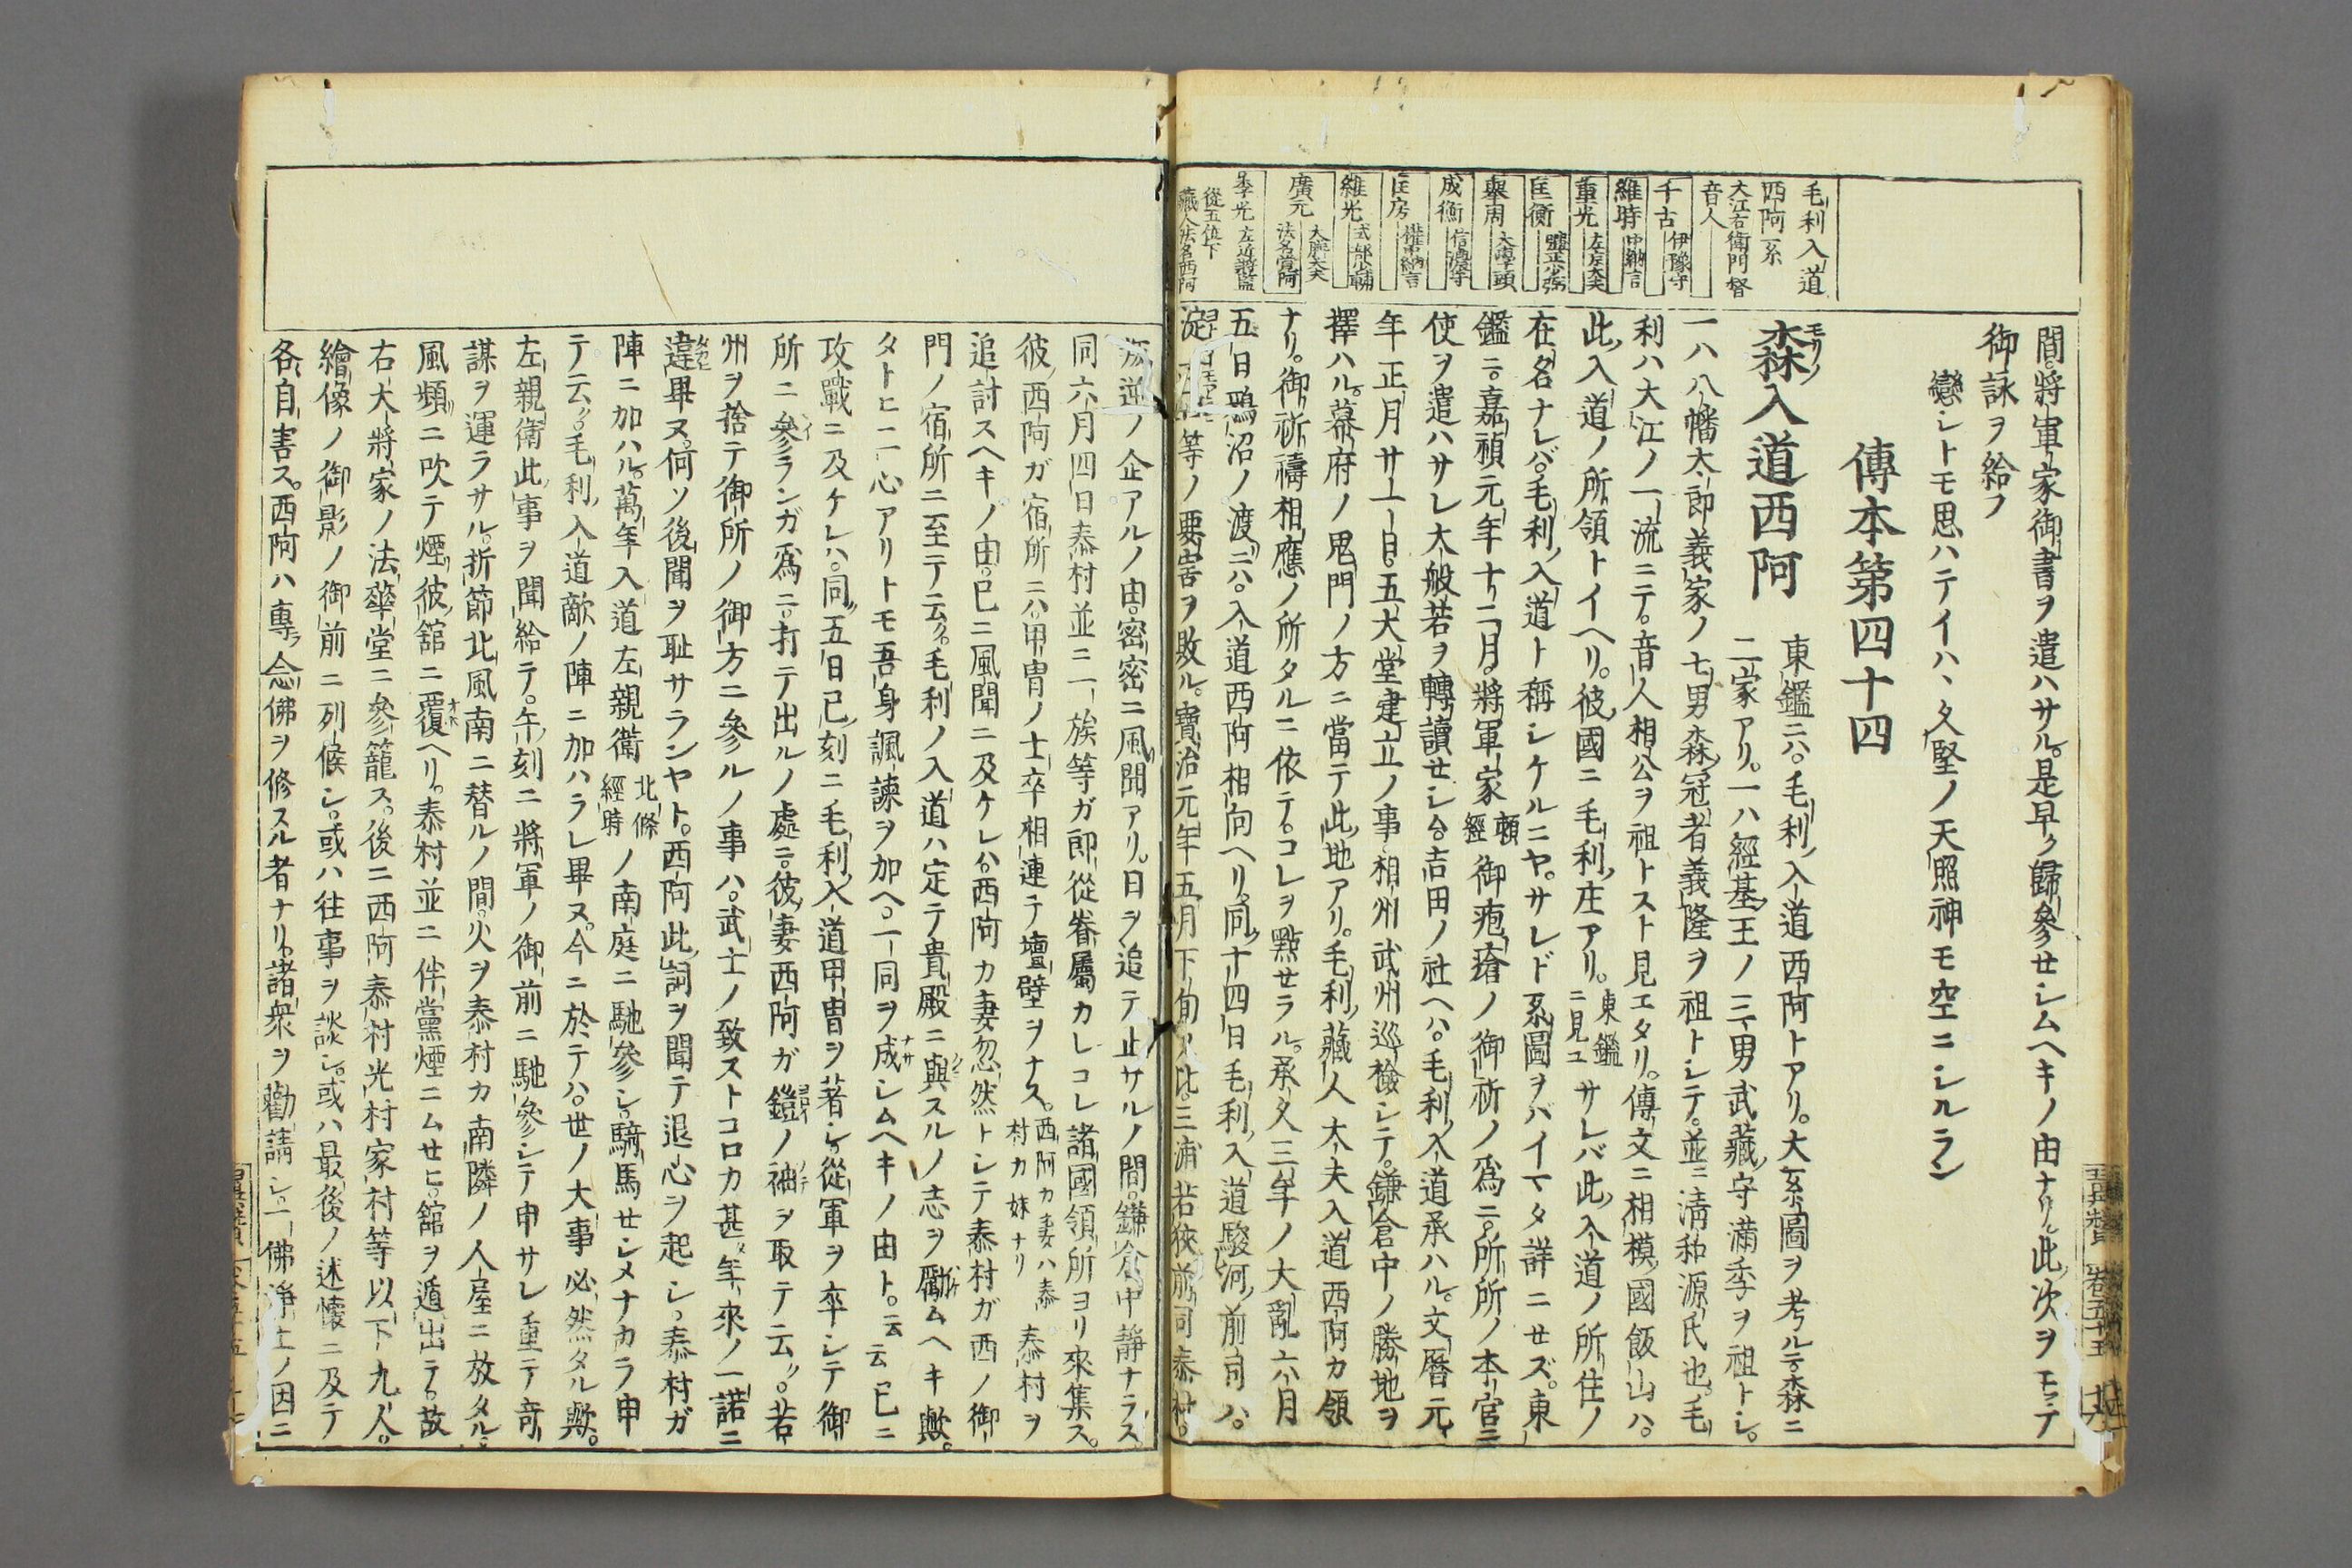 間。將軍家御書ヲ遣ハサル。是早ク歸參セシムヘキノ由ナリ。此次ヲモツテ
御詠ヲ給フ
戀シトモ思ハテイハヽ久堅ノ天照神モ空ニシルラン
傳本第四十四
森入道西阿
モリノ
東鑑ニハ毛利入道西阿トアリ。大系圖ヲ考ルニ森ニ
二家アリ。一ハ經基王ノ三男武藏守滿季ヲ祖トシ。
一ハ八幡太郎義家ノ七男森冠者義隆ヲ祖トシテ。並ニ清和源氏也。毛
利ハ大江ノ一流ニテ。音人相公ヲ祖トスト見エタリ。傳文ニ相模國飯山ハ。
此入道ノ所領トイヘリ。彼國ニ毛利庄アリ。東鑑ニ見ユサレバ此入道ノ所住ノ
在名ナレバ。毛利入道ト稱シケルニヤ。サレド系圖ヲバイマタ詳ニセズ。東
鑑ニ。嘉禎元年十二月。將軍家頼經御疱瘡ノ御祈ノ爲ニ。所所ノ本宮ニ
使ヲ遣ハサレ大般若ヲ轉讀セシム。吉田ノ社ヘハ。毛利入道承ハル。文曆元
年正月廿一日。五大堂建立ノ事。相州武州巡檢シテ。鎌倉中ノ勝地ヲ
擇ハル。幕府ノ鬼門ノ方ニ當テ此地アリ。毛利藏人大夫入道西阿カ領
ナリ。御祈禱相應ノ所タルニ依テ。コレヲ點セラル。承久三年ノ大亂六月
五日鵜沼ノ渡ニハ。入道西阿相向ヘリ。同十四日毛利入道駿河前司ハ。
淀 等ノ要害ヲ敗ル。寶治元年五月下旬ノ比。三浦若狹前司泰村。
毛利入道
西阿系
大江右衛門督
音人
千古 伊豫守
維時 中納言
重光 左京大夫
匡衡 彈正少弼
舉周 大學頭
成衡 信濃守
匡房 權中納言
維光 式部少輔
廣元 大膳大夫 法名覺阿
季光 左近將監
從五位下
藏人法名西阿
叛逆ノ企アルノ由。密密ニ風聞アリ。日ヲ追テ止サルノ間。鎌倉中靜ナラス。
同六月四日泰村並ニ一族等ガ郎從眷屬カレコレ諸國領所ヨリ來集ス。
彼西阿ガ宿所ニハ。甲冑ノ士卒相連テ壇壁ヲナス。西阿カ妻ハ泰村カ妹ナリ泰村ヲ
追討スヘキノ由。已ニ風聞ニ及ケレハ。西阿カ妻忽然トシテ泰村ガ西ノ御
門ノ宿所ニ至テ云ク。毛利ノ入道ハ定テ貴殿ニ與スルノ志ヲ勵ムヘキ歟。
タトヒ二心アリトモ吾身諷諫ヲ加ヘ。一同ヲ成シムヘキノ由ト。云云已ニ
攻戰ニ及ケレハ。同五日巳刻ニ毛利入道甲冑ヲ著シ。從軍ヲ卒シテ御
所ニ參ランガ爲ニ。打テ出ルノ處ニ。彼妻西阿ガ鎧ノ袖ヲ取テ云。若
州ヲ捨テ御所ノ御方ニ參ルノ事ハ。武士ノ致ストコロカ甚年來ノ一諾ニ
違畢ヌ。何ソ後聞ヲ耻サランヤト。西阿此詞ヲ聞テ退心ヲ起シ。泰村ガ
陣ニ加ハル。萬年入道左親衛北條經時ノ南庭ニ馳參シ。騎馬セシメナカラ申
テ云。毛利入道敵ノ陣ニ加ハラレ畢ヌ。今ニ於テハ。世ノ大事必然タル歟。
左親衛此事ヲ聞給テ。午刻ニ將軍ノ御前ニ馳參シテ申サレ重テ奇
謀ヲ運ラサル。折節北風南ニ替ルノ間。火ヲ泰村カ南隣ノ人屋ニ放タル。
風頻ニ吹テ煙彼舘ニ覆ヘリ。泰村並ニ伴黨煙ニムセヒ。舘ヲ遁出テ。故
右大將家ノ法華堂ニ參籠ス。後ニ西阿泰村光村家村等以下九人。
繪像ノ御影ノ御前ニ列候シ。或ハ往事ヲ談シ。或ハ最後ノ述懷ニ及テ
各自害ス。西阿ハ專ラ念佛ヲ修スル者ナリ。諸衆ヲ勸請シ。一佛淨土ノ因ニ
卷五十五